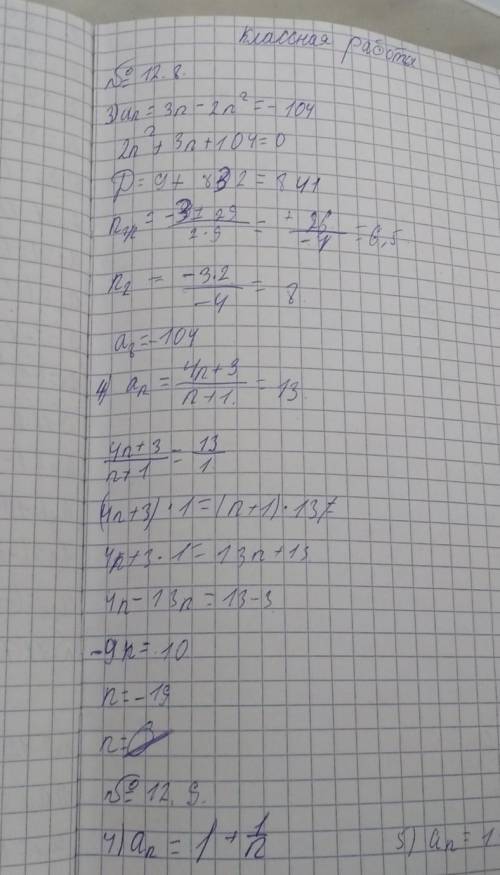 Классная работа
№ 12.8.
3) an = 3n - 2n² = -104
2n² + 3n + 104 = 0
D = 9 + 832 = 841
= 6,5
n₂ = -3.2/-4 = 8
a₈ = -104
4) an = 4n+3/n+1 = 13
4n+3/n+1 = 13/1
(4n+3) · 1 = (n+1) · 13
4n+3 · 1 = 13n + 13
4n - 13n = 13 - 3
-9n = 10
n = -19
n =
№ 12.9.
4) an = 1 + 1/n 5) an = 1